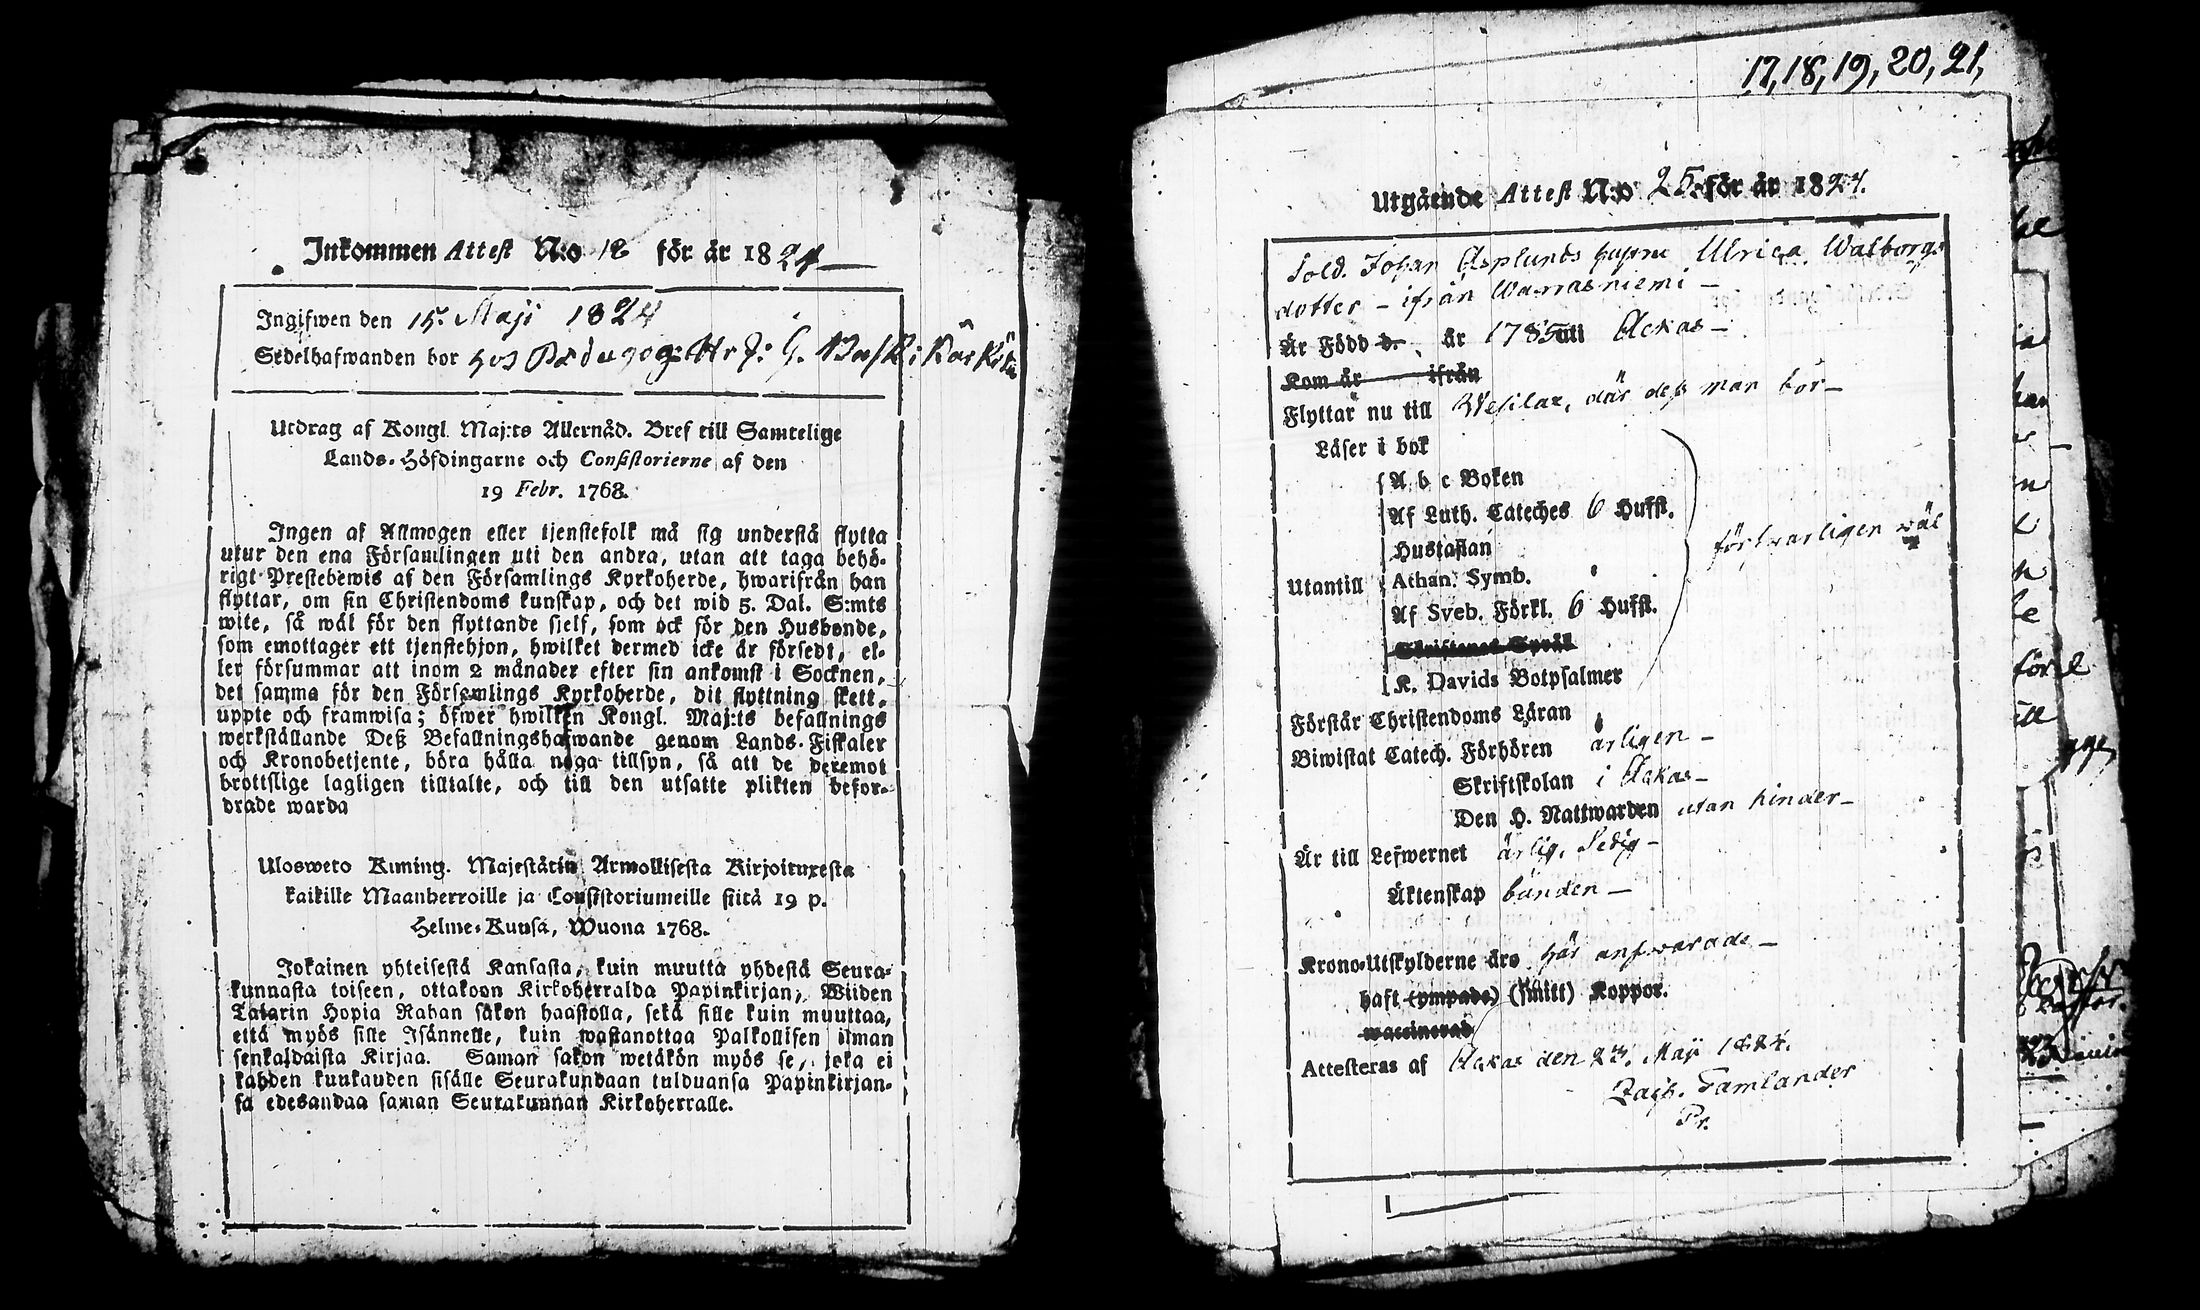 Inkommen Attest N:o 18 för år 1824
Ingifwen den 15. Maji 1824
Sedelhafwanden bor hos Pædagog: Hr J: G.
Utdrag af Kongl. Maj:ts Allernåd. Bref till Samtelige
Lands-Höfdingarne och Consistorierne af den
19 Febr. 1768.
Ingen af Allmogen eller tjenstefolk må sig understå flytta
utur den ena Församlingen uti den andra, utan att taga behö-
rigt Prestebewis af den Församlings Kyrkoherde, hwarifrån han
flyttar, om sin Christendoms kunskap, och det wid 5. Dal. S:mts
wite, så wäl för den flyttande sielf, som ock för den Husbonde,
som emottager ett tjenstehjon, hwilket dermed icke är försedt, el-
ler försummar att inom 2 månader efter sin ankomst i Socknen,
det samma för den Församlings Kyrkoherde, dit flyttning skett,
uppte och framwisa; öfwer hwilken Kongl. Maj:ts befallnings
werkställande Deß Befallningshafwande genom Lands-Fiskaler
och Kronobetjente, böra hålla noga tillsyn, så att de deremot
brottslige lagligen tilltalte, och till den utsatte plikten befor-
drade warda
Ulosweto Kuning. Majestätin Armollisesta Kirjoituxesta
kaikille Maanherroille ja Consistoriumeille siitä 19 p.
Helme-Kuusa, Wuona 1768.
Jokainen yhteisestä Kansasta, kuin muutta yhdestä Seura-
kunnasta toiseen, ottakoon Kirkoherralda Papinkirjan, Wiiden
Talarin Hopia Rahan sakon haastolla, sekä sille kuin muuttaa,
että myös sille Isännelle, kuin wastanottaa Palkollisen ilman
senkaldaista Kirjaa. Saman sakon wetäkön myös se, joka ei
kahden kuukauden sisälle Seurakundaan tulduansa Papinkirjan-
sa edesandaa saman Seurakunnan Kirkoherralle.
17, 18, 19, 20, 21,
Utgående Attest N:o 25 för år 1824.
Sold. Johan Asplunds hustru Ulrica Walborgs
dotter – ifrån Warrasniemi –
Är Född d. år 1785 uti Ackas –
Kom år ifrån
Flyttar nu till Wesilax, där deß man bor –
Läser i bok
A b c Boken
Af Luth. Cateches 6 Hufst.
Hustaflan
Utantill Athan. Symb.
Af Sveb. Förkl. 6 Hufst.
Skriftenes Språk
K. Davids Botpsalmer
försvarligen wäl
Förstår Christendoms Läran
Biwistat Catech. Förhören årligen –
Skriftskolan i Ackas –
Den H. Nattwarden utan hinder –
Är till Lefwernet ärlig, Sedig –
Äktenskap bunden –
Krono-Utskylderne äro här answarade –
haft (ympade) (smitt) Koppor.
waccinerad
Attesteras af Ackas den 23. Maji 1824.
Zach. Tamlander
Pr.